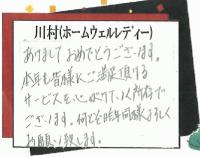 川村(ホームウェルレディー)
あけまして おめでとうございます。
本年も皆様にご満足頂ける
サービスを心がけて、いく所存で
ございます。何とぞ昨年同様よろしく
お願い致します。